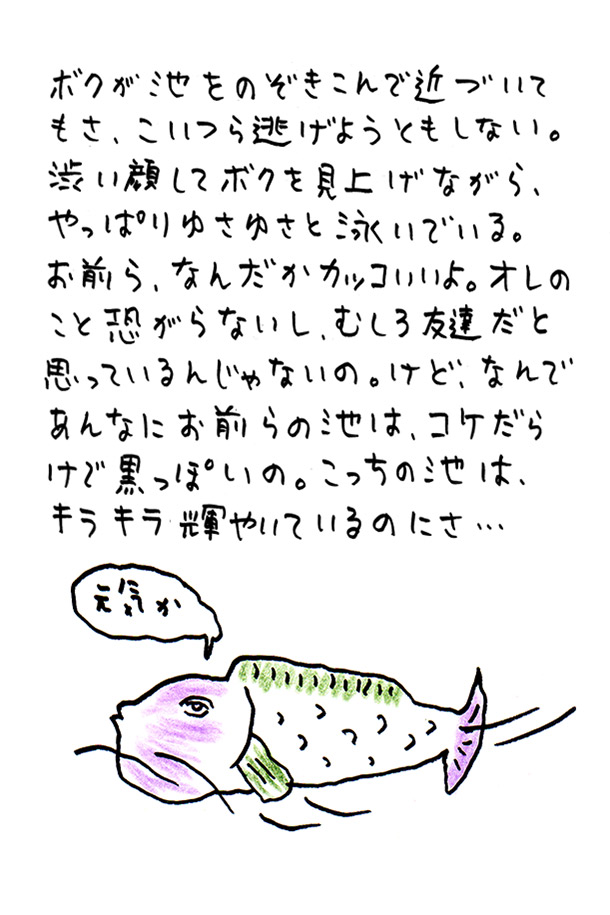 ボクが池をのぞきこんで近づいて
もさ、こいつら逃げようともしない。
渋い顔してボクを見上げながら、
やっぱりゆさゆさと泳いでいる。
お前ら、なんだかカッコいいよ。オレの
こと恐がらないし、むしろ友達だと
思っているんじゃないの。けど、なんで
あんなにお前らの池は、コケだら
けで黒っぽいの。こっちの池は、
キラキラ輝やいているのにさ…
元気か